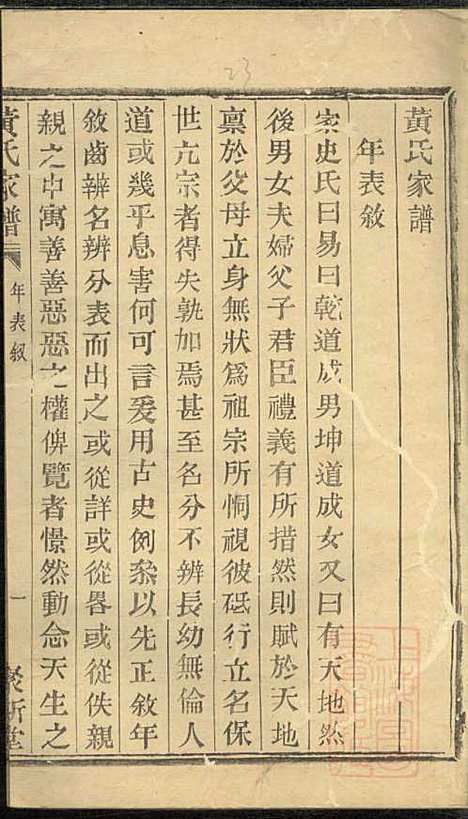 23
黃氏家譜
年表敘
案史氏曰易曰乾道成男坤道成女又曰有天地然
後男女夫婦父子君臣禮義有所措然則賦於天地
稟於父母立身無狀爲祖宗所恫視彼砥行立名保
世亢宗者得失孰加焉甚至名分不辨長幼無倫人
道或幾乎息害何可言爰用古史例叅以先正敘年
敘齒辨名辨分表而出之或從詳或從畧或從佚親
親之中寓善善惡惡之權俾覽者憬然動念天生之
黃氏家譜
年表敘
一
堂